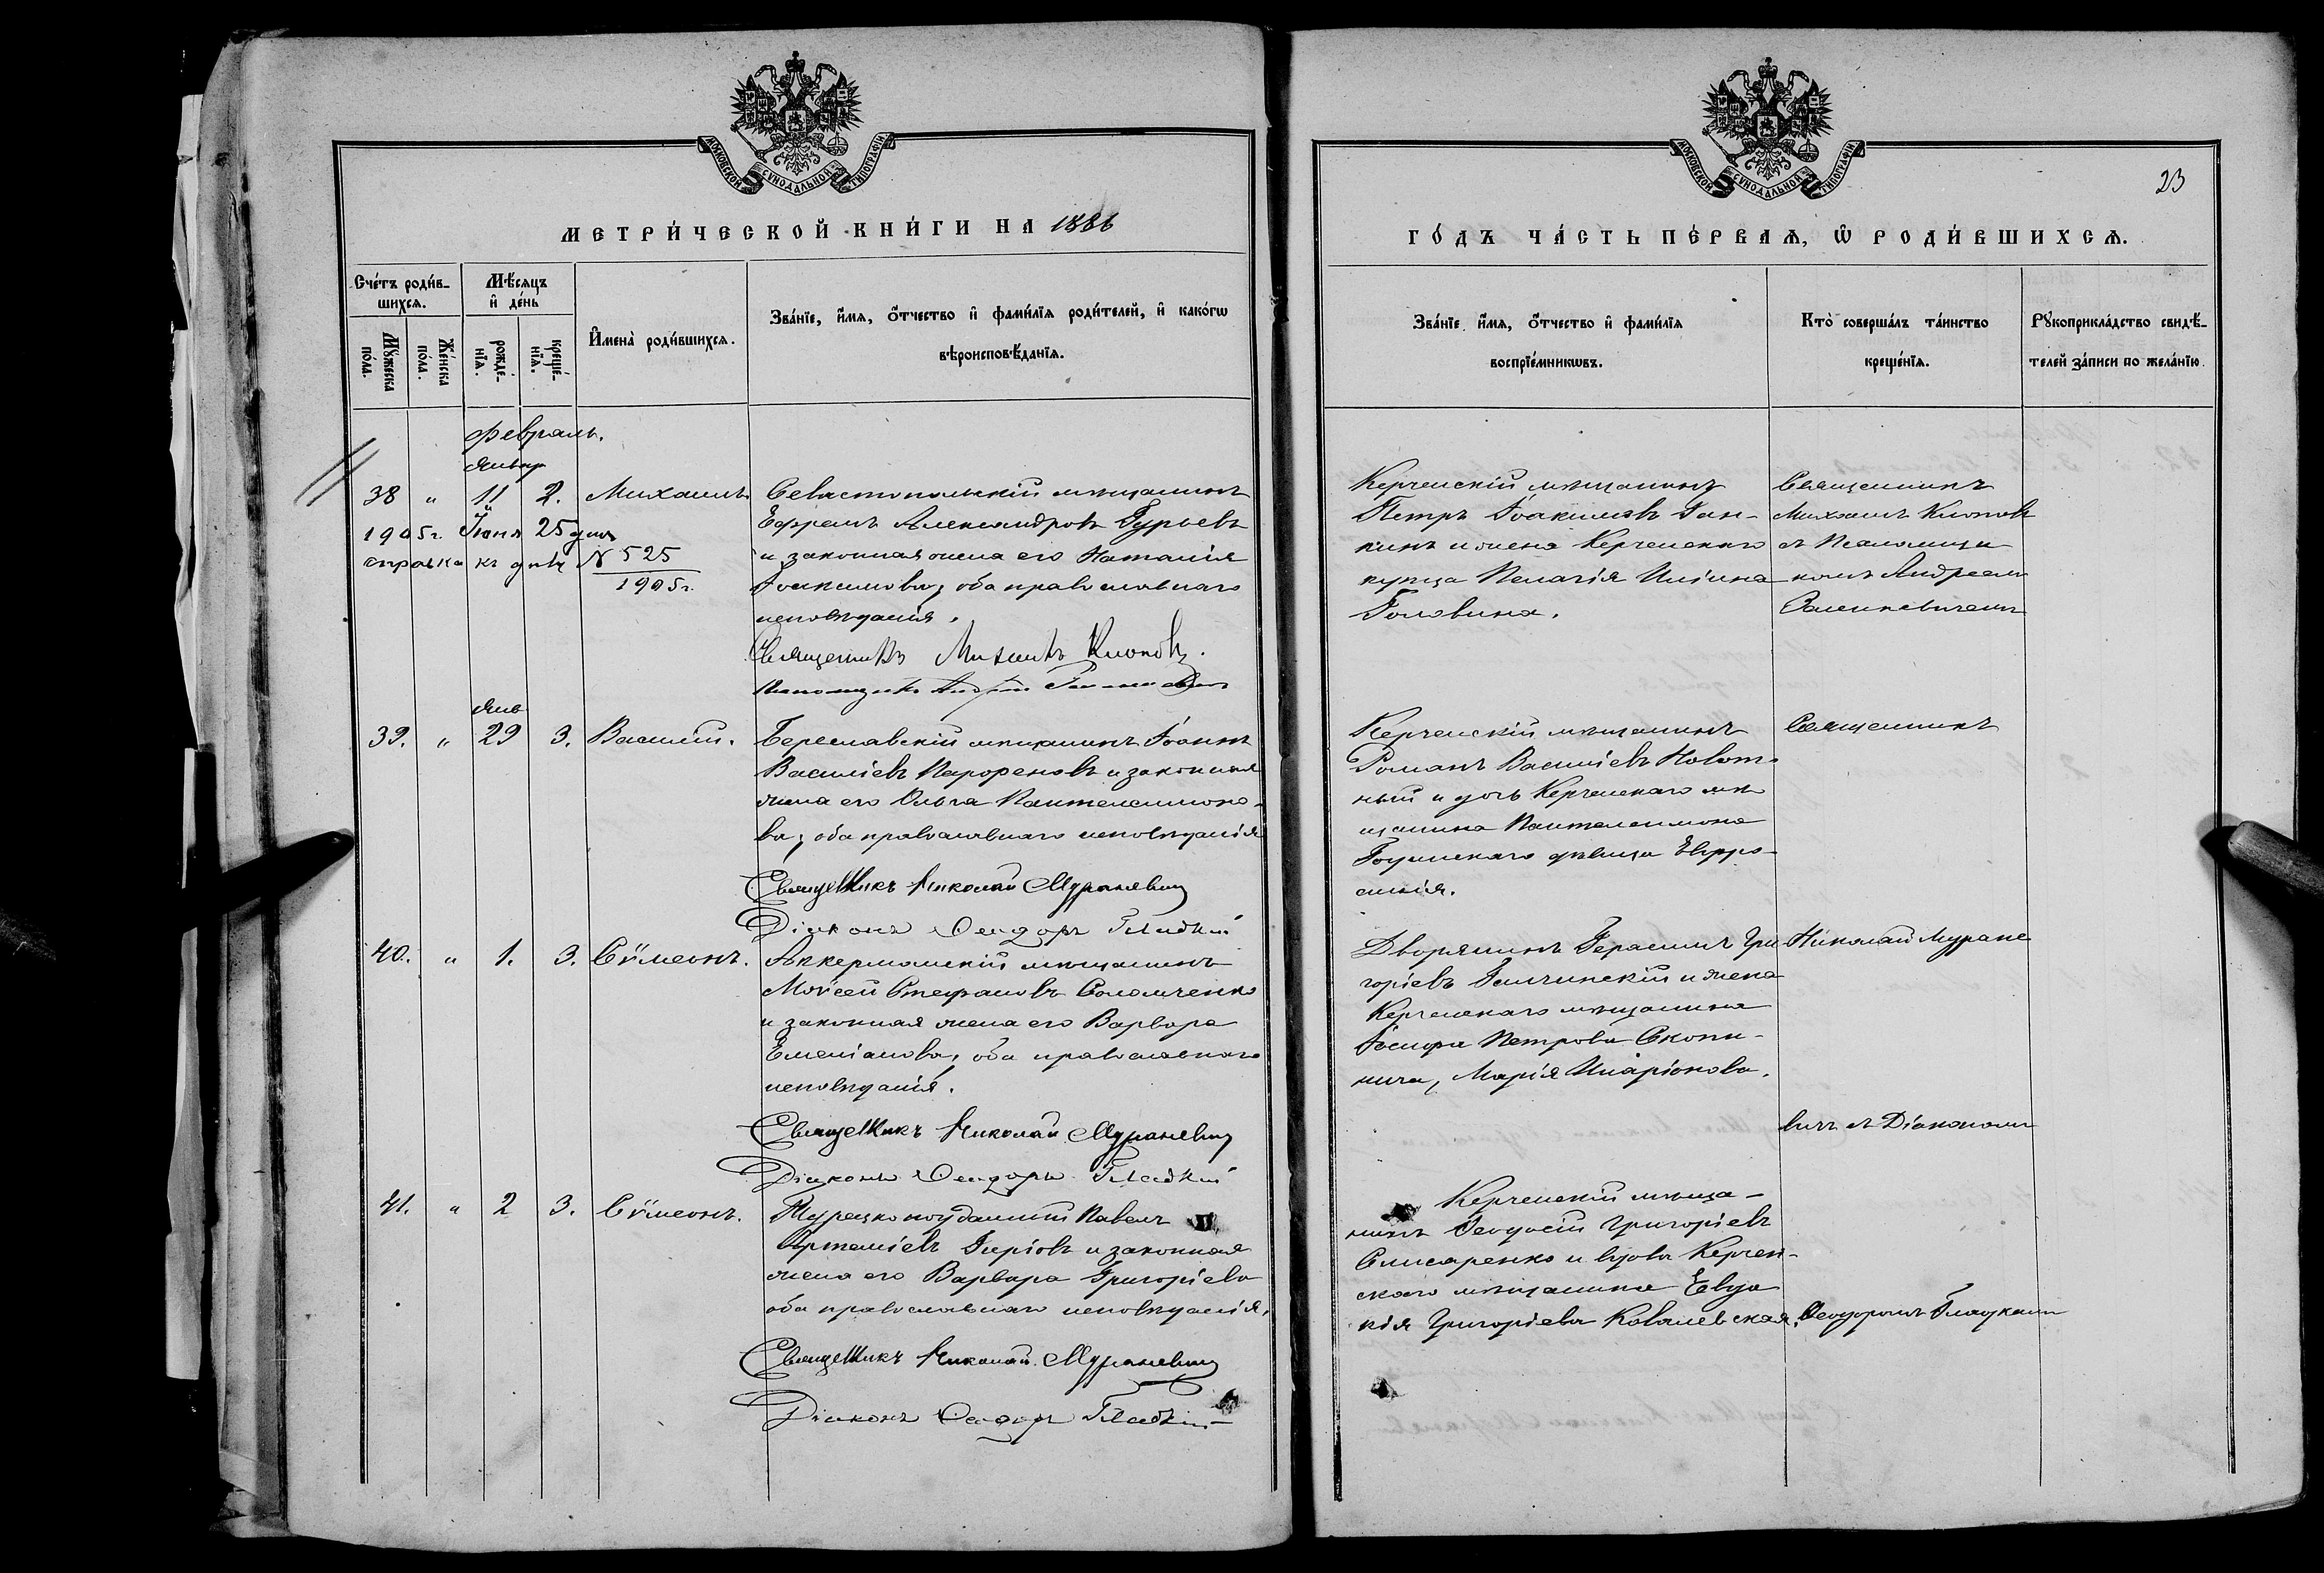 МОСКОВСКОЙ СѴНОДАЛЬНОЙ ТИПОГРАФІИ
МЕТРИ́ЧЕСКОЙ КНИ́ГИ НА 1886
Сче́тъ роди́в-
шихся.
Мѣ́сяцъ
и де́нь
Мꙋ́жеска
по́ла.
Же́нска
по́ла.
рожде́-
нїѧ.
креще́-
нїѧ.
Имена̀ роди́вшихсѧ.
Зва́нїе, и́мѧ, о́тчество и фами́лїѧ роди́телей, и како́гѡ
вѣроисповѣ́данїѧ.
Февраль.
Январ
38 " 11 2. Михаилъ
Севастопольскій мѣщанинъ
Ефремъ Александровъ Гурьевъ
и законная жена его Наталія
Іоакимова, оба православнаго
исповѣданія.
1905г. Іюня 25 дня
справка къ дѣлу № 525
1905г.
Священникъ Михаилъ Клоповъ.
Псаломщикъ Андрей
Янв
39. " 29 3. Василій.
Береславскій мѣщанинъ Іоаннъ
Василіевъ Парфеновъ и законная
жена его Ольга Пантелеимоно-
ва, оба православнаго исповѣданія
Священникъ Николай Мураневич
Діаконъ Ѳеодоръ Гладкій
40. " 1. 3. Сѵмеонъ.
Аккерманскій мѣщанинъ
Моѵсей Стефановъ Соломченко
и законная жена его Варвара
Емеліанова, оба православнаго
исповѣданія.
Священникъ Николай Мураневич
Діаконъ Ѳеодоръ Гладкій
41. " 2 3. Сѵмеонъ.
Турецкоподданный Павелъ
Артеміевъ и законная
жена его Варвара Григоріева
оба православнаго исповѣданія,
Священникъ Николай Мураневич
Діаконъ Ѳеодоръ Гладкій
МОСКОВСКОЙ СѴНОДАЛЬНОЙ ТИПОГРАФІИ
23
ГО́ДЪ ЧА́СТЬ ПЕ́РВАѦ, Ѿ РОДИ́ВШИХСѦ.
Зва́нїе, и́мѧ, о́тчество и фами́лїѧ
воспрїе́мникѡвъ.
Кто̀ соверша́лъ та́инство
креще́нїѧ.
Рꙋкоприкла́дство свидѣ́-
телей за́писи по жела́нїю.
Керченскій мѣщанинъ
Петръ Іоакимовъ Ган-
кинъ и жена Керченскаго
купца Пелагія Иліина
Головина.
Священникъ
Михаилъ Клоповъ
съ Псаломщи
комъ Андреемъ
Керченскій мѣщанинъ
Романъ Василіевъ Новот-
ный и дочь Керченскаго мѣ
щанина Пантелеимона
дѣвица Евфро-
синія.
Священникъ
Дворянинъ Герасимъ Гри
горіевъ и жена
Керченскаго мѣщанина
Іосифа Петрова Скопи-
нича, Марія Иларіонова.
Николай Муране
вичъ съ Діакономъ
Керченскій мѣща-
нинъ Ѳеодосій Григоріевъ
Слисаренко и вдова Керчен-
скаго мѣщанина Евдо
кія Григоріева Ковалевская.
Ѳеодоромъ Гладкимъ